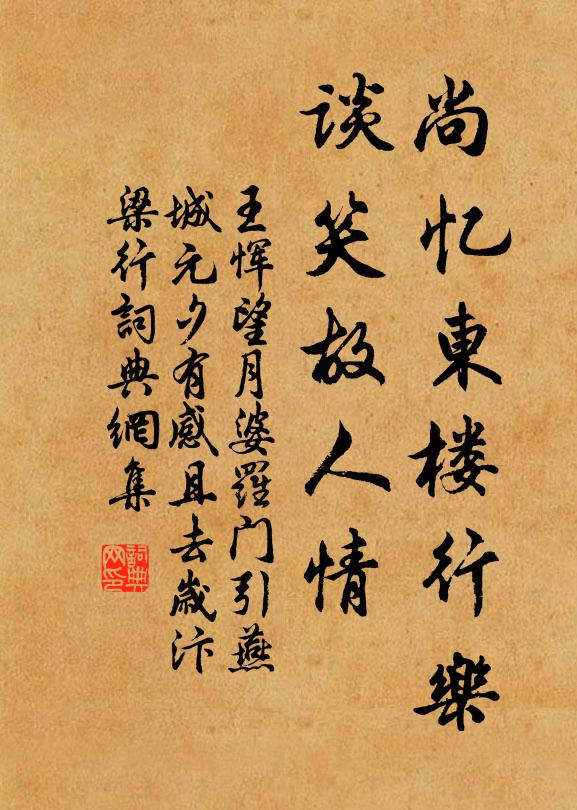 尚忆東楼行樂
谈笑故人情
王恽望月婆羅门引燕
城元夕有感且去歲汴
梁行詞典網集
詞典
网印